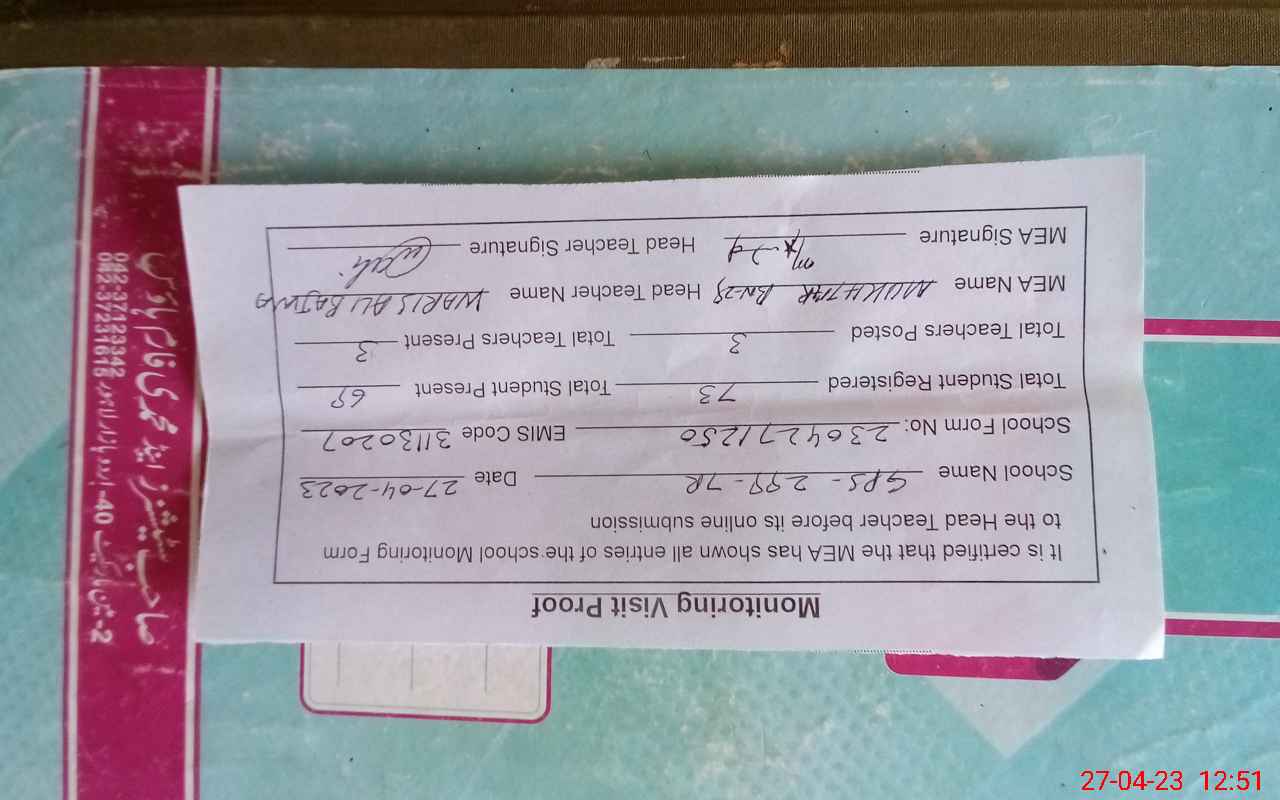 Monitoring Visit Proof
It is certified that the MEA has shown all entries of the school Monitoring Form
to the Head Teacher before its online submission
School Name GPS - 299-7R Date 27-04-2023
School Form No: 2304271250 EMIS Code 31130207
Total Student Registered 73 Total Student Present 69
Total Teachers Posted 3 Total Teachers Present 3
MEA Name MUKHTAR Head Teacher Name WARIS ALI BAJWA
MEA Signature Head Teacher Signature
صاحب پبلشرز اینڈ محمدی فارم ہاؤس
042-37123342
042-37231616
27-04-23 12:51